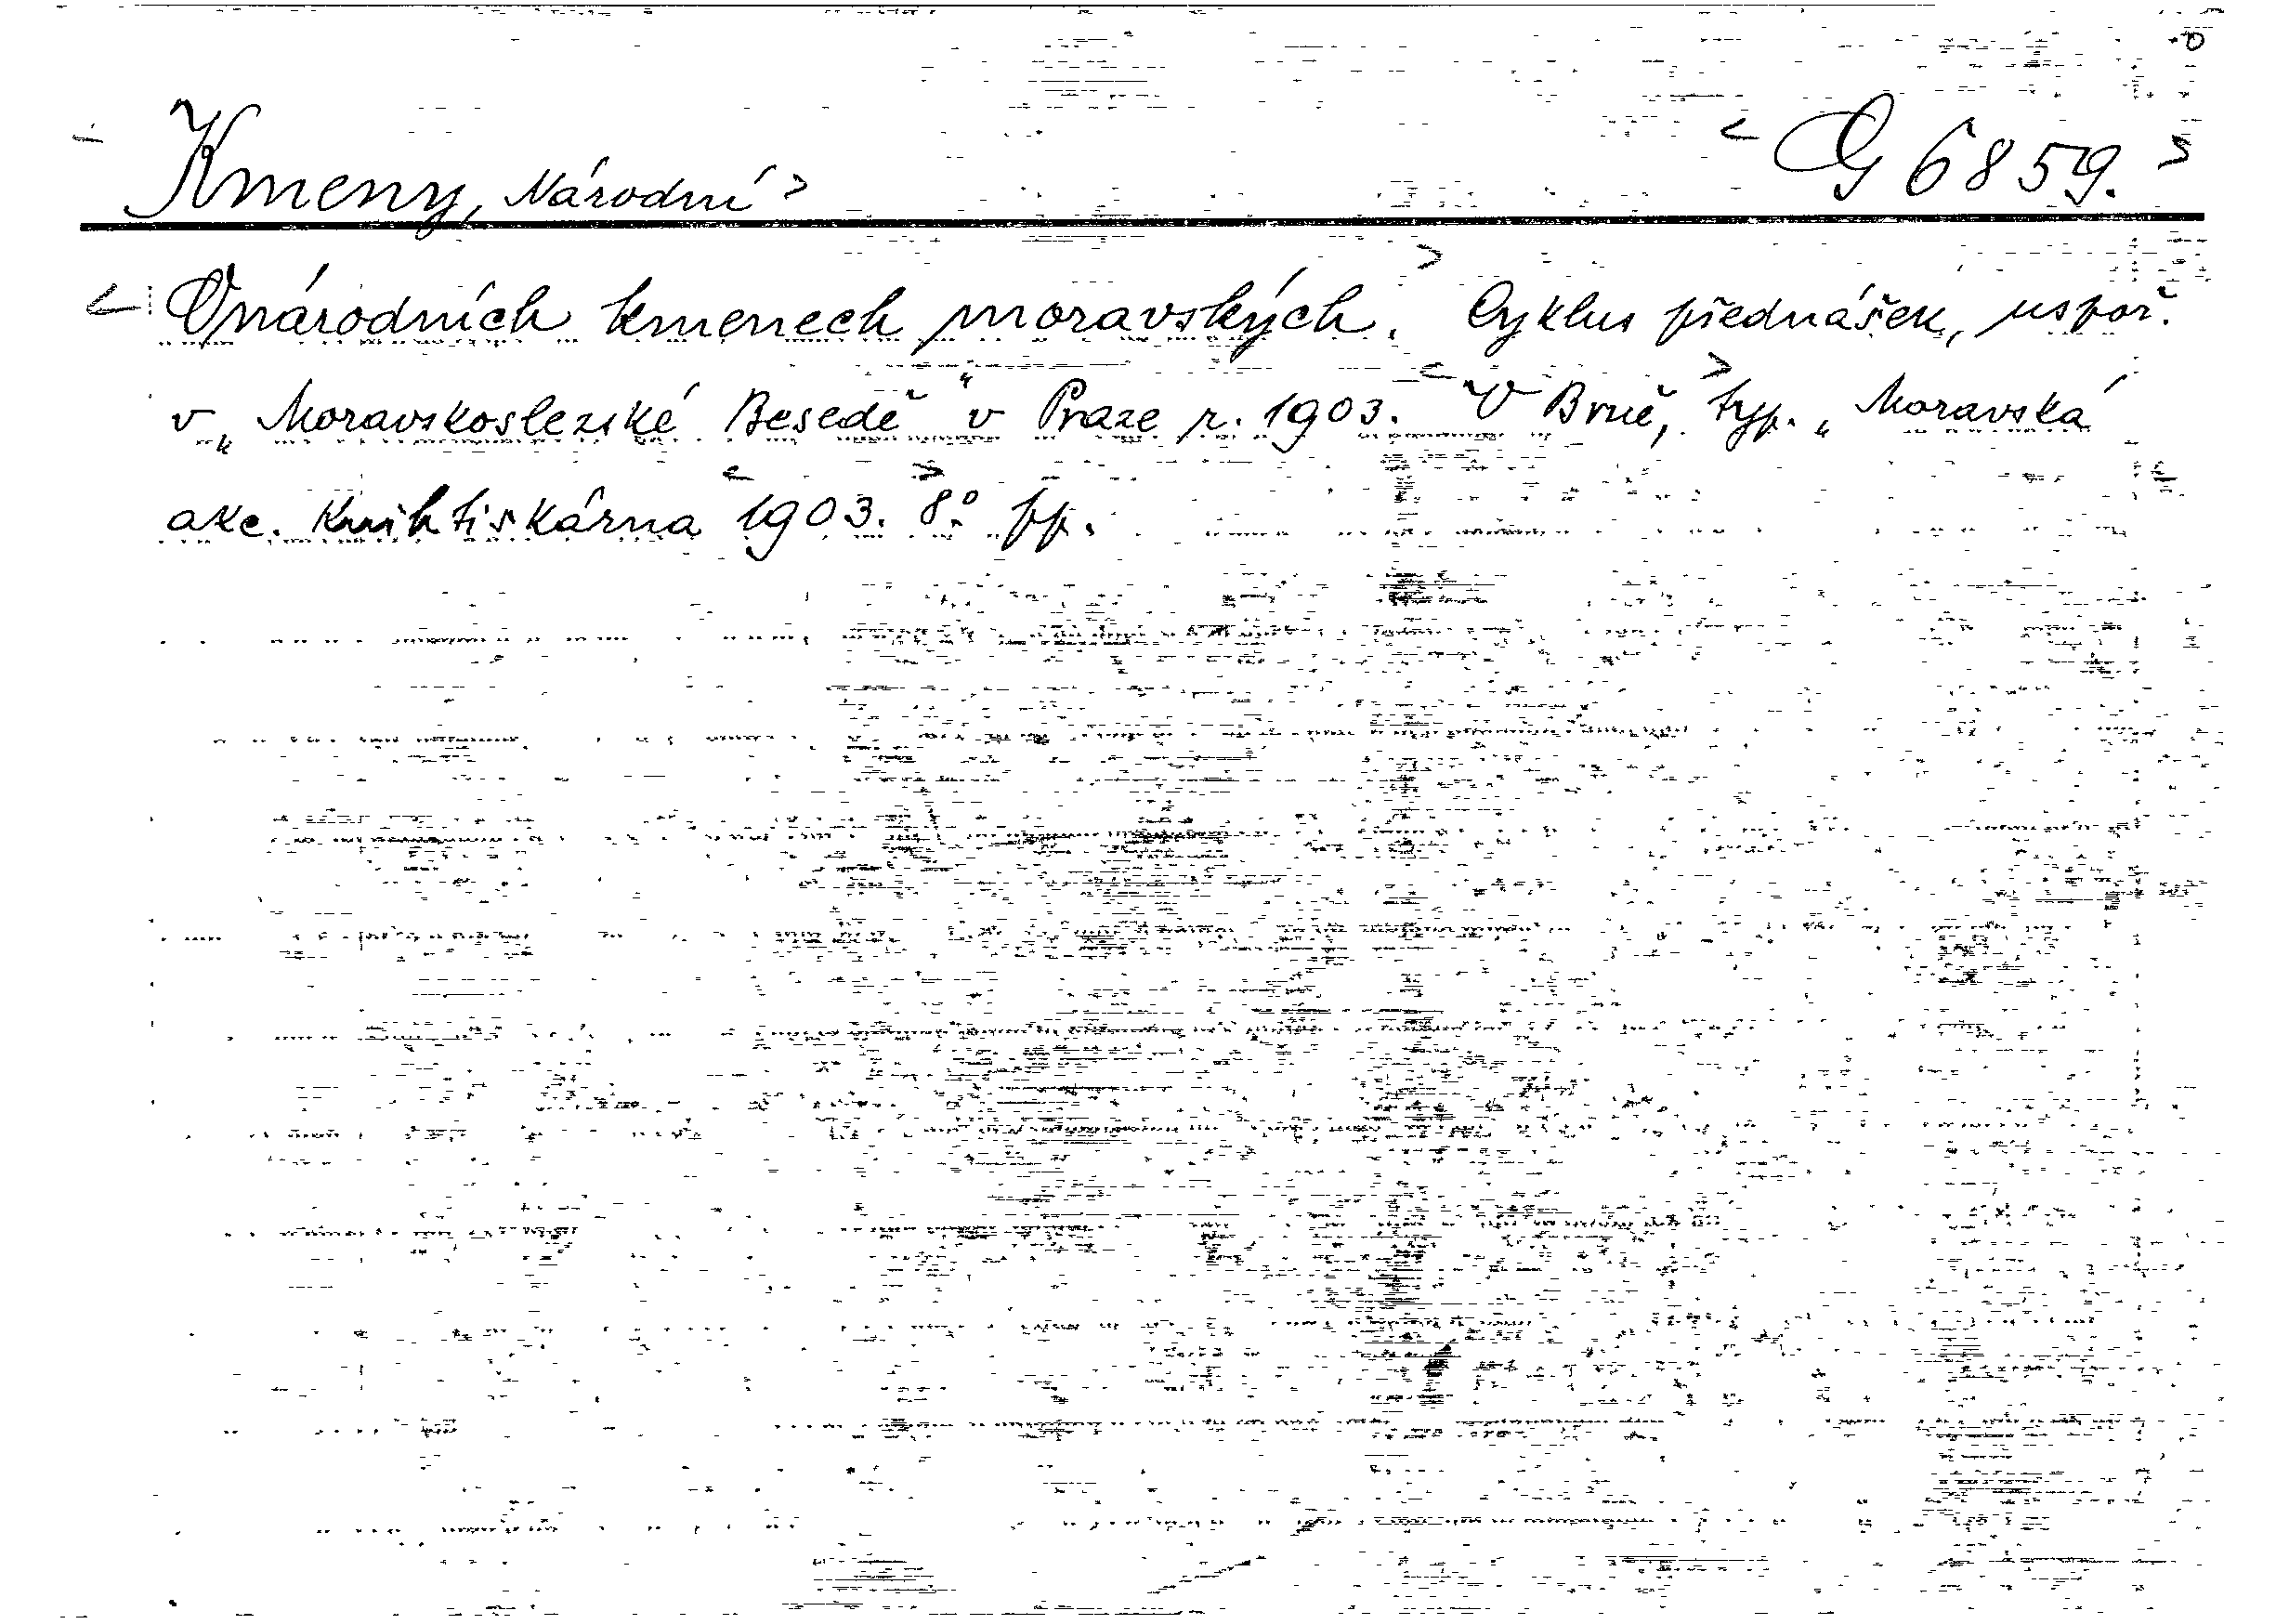 Kmeny, Národní
G 6859.
O národních kmenech moravských. Cyklus přednášek, uspoř.
v „Moravskoslezské Besedě“ v Praze r. 1903. V Brně, typ. „Moravská
akc. knihtiskárna 1903. 8° pp.